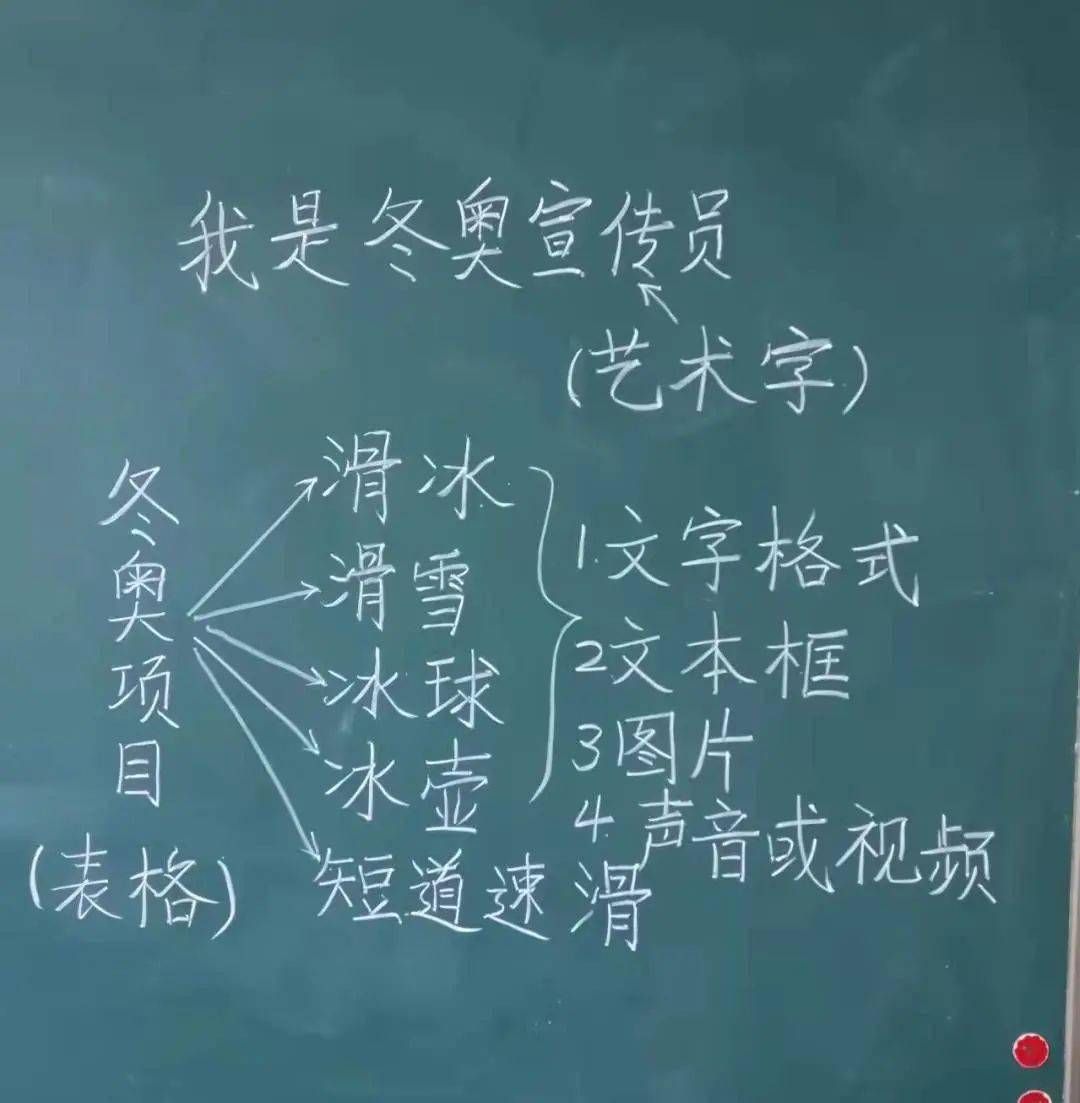 我是冬奥宣传员
(艺术字)
冬奥项目
(表格)
滑冰
滑雪
冰球
冰壶
短道速滑
1.文字格式
2文本框
3图片
4.声音或视频